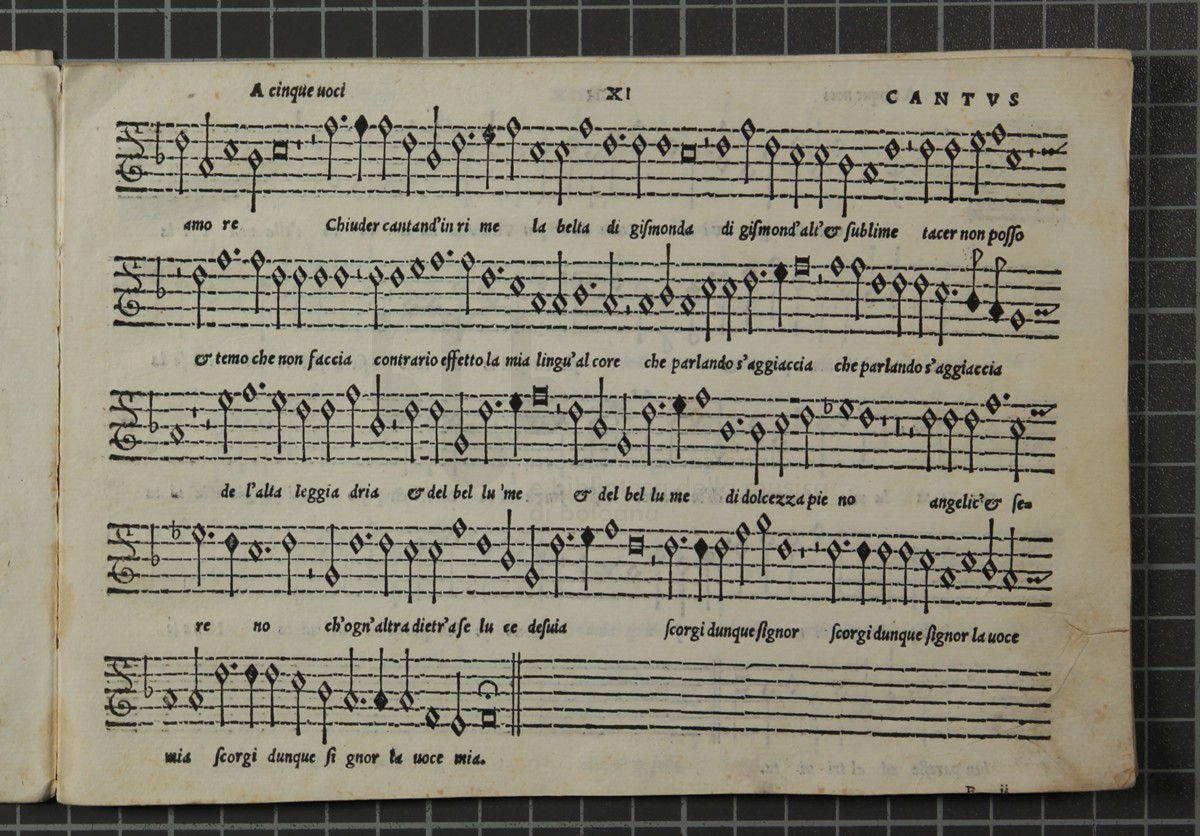 A cinque uoci XI CANTVS
amo re Chiuder cantand'in ri me la belta di giſmonda di giſmond'alt'& ſublime tacer non poſſo
& temo che non faccia contrario effetto la mia lingu'al core che parlando s'aggiaccia che parlando s'aggiaccia
de l'alta leggia dria & del bel lu 'me & del bel lu me di dolcezza pie no angelic'& ſe=
re no ch'ogn'altra dietr'a ſe lu ce deſuia ſcorgi dunque ſignor ſcorgi dunque ſignor la uoce
mia ſcorgi dunque ſi gnor la uoce mia.